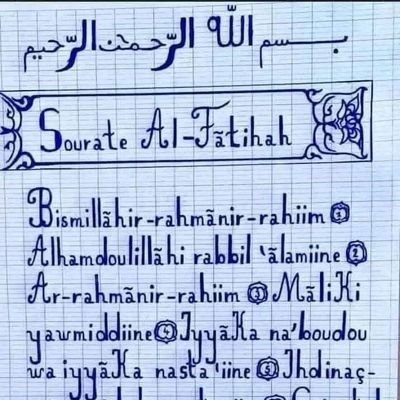 بسم الله الرّحمٰن الرّحيم
Sourate Al-Fãtihah
Bismillãhir-rahmãnir-rahiim 1
Alhamdoulillãhi rabbil 'ãlamiine 2
Ar-rahmãnir-rahiim 3 MãliKi
yawmiddiine 4 IyyãKa na'boudou
wa iyyãKa nasta'iine 5 Ihdinaç-